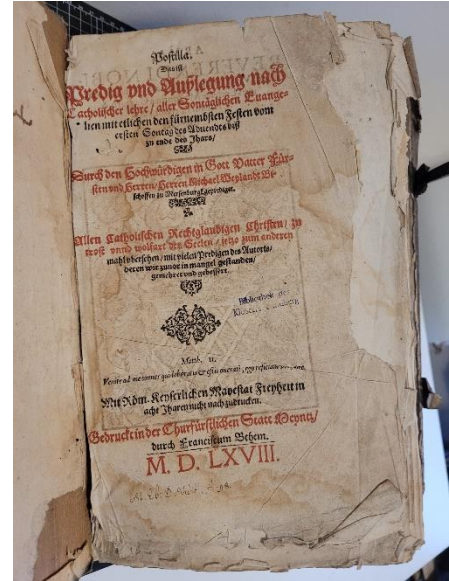 Postilla.
Das ist
Predig vnd Außlegung nach
Catholischer lehre / aller Sontäglichen Euange-
lien mit etlichen den fürnembsten Festen vom
ersten Sontag des Aduendts biß
zu ende des Jhars /
Durch den Hochwürdigen in Gott Vatter Für-
sten vnd Herren / Herren Michael Weylandt Bi-
schoffen zu Mersenburg geprediget.
Allen Catholischen Rechtglaubigen Christen / zu
trost vnnd wolfart der Seelen / jetzo zum anderen
mahl vbersehen / mit vielen Predigen des Autoris /
deren wir zuvor in mangel gestanden /
gemehret und gebessert.
Bibliothek des
Klosters
Matth. 11.
Venite ad me omnes qui laboratis & onerati
Mit Röm. Keyserlichen Mayestat Freyheit in
acht Jharen nicht nach zudrucken.
Gedruckt in der Churfürstlichen Statt Meyntz /
durch Franciscum Behem.
M. D. LXVIII.